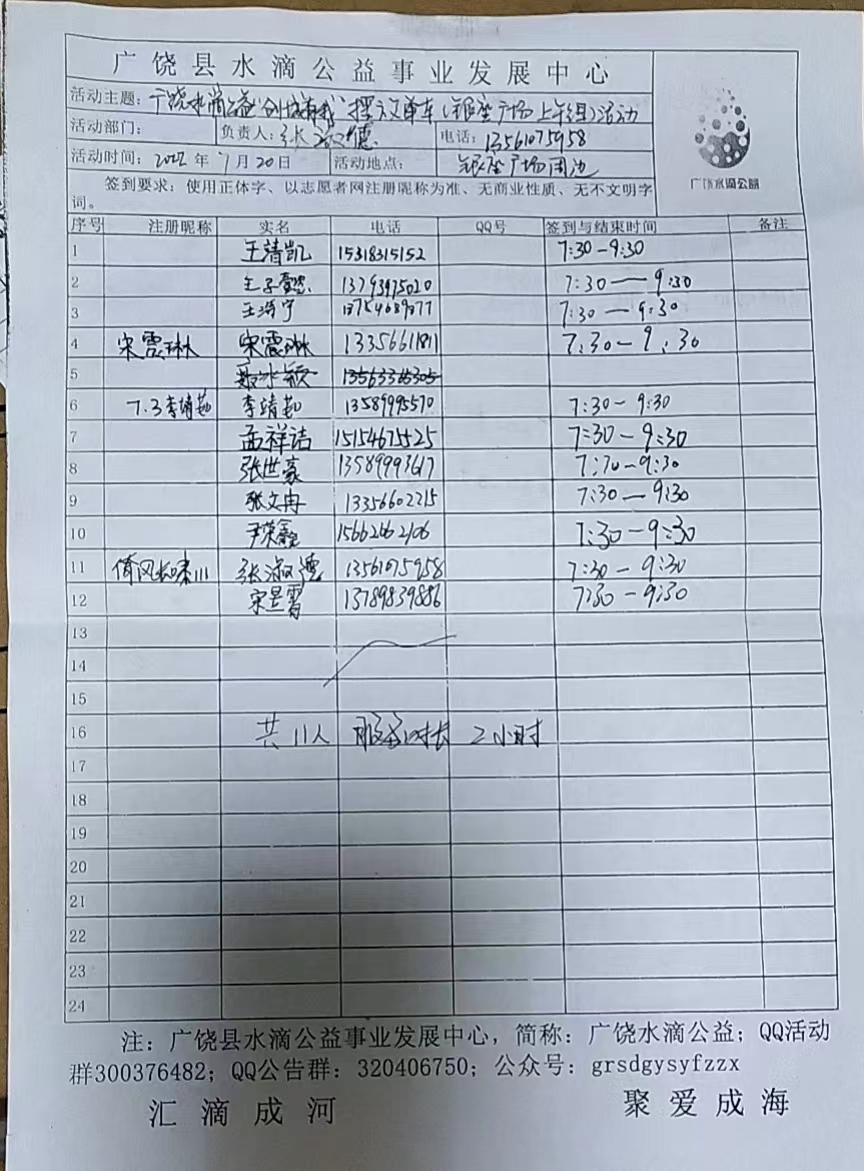 广饶县水滴公益事业发展中心
活动主题：广饶水滴公益"创城有我"摆放单车（银座广场上午组）活动
活动部门： 负责人：张淑德 电话：13561075958
活动时间：2022年7月20日 活动地点：银座广场周边
广饶水滴公益
签到要求：使用正体字、以志愿者网注册昵称为准、无商业性质、无不文明字
词。
序号 注册昵称 实名 电话 QQ号 签到与结束时间 备注
1 王靖凯 15318315152 7:30-9:30
2 王子 13793975020 7:30—9:30
3 王浩宁 7:30—9:30
4 宋震琳 宋震琳 13356611811 7:30-9:30
5
6 7.3李靖茹 李靖茹 13589995570 7:30-9:30
7 孟祥洁 15154675525 7:30-9:30
8 张世豪 13589993617 7:30-9:30
9 张文冉 13356602215 7:30—9:30
10 尹荣鑫 15662462106 7:30-9:30
11 倚风长啸111 张淑德 13561075958 7:30-9:30
12 宋昱霄 13789839886 7:30-9:30
13
14
15
16 共11人 服务时长 2小时
17
18
19
20
21
22
23
24
注：广饶县水滴公益事业发展中心，简称：广饶水滴公益；QQ活动
群300376482；QQ公告群：320406750；公众号：grsdgysyfzzx
汇滴成河 聚爱成海